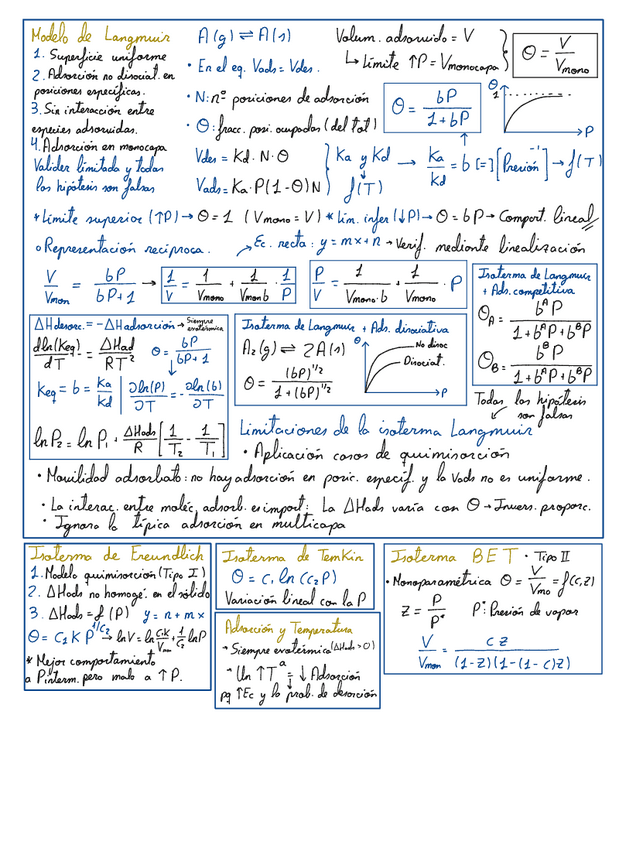 Modelo de Langmuir
1. Superficie uniforme
2. Adsorción no disociat. en
posiciones específicas.
3. Sin interacción entre
especies adsorvidas.
4. Adsorción en monocapa
Validez limitada y todas
las hipótesis son falsas
A(g) ⇌ A(s)
• En el eq. Vads = Vdes.
• N: nº posiciones de adsorción
• Θ: fracc. posi. ocupadas (del tot)
Vdes = Kd · N · Θ
Vads = Ka · P(1-Θ)N
Ka y Kd → Ka/Kd = b [=] [Presión]⁻¹ → f(T)
f(T)
Volum. adsorvido = V
↳ Límite ↑P = Vmonocapa
Θ = V/Vmono
Θ = bP/(1+bP)
Θ
1
P
* Límite superior (↑P) → Θ = 1 (Vmono = V) * Lim. infer (↓P) → Θ = bP → Comport. lineal
○ Representación recíproca. → Ec. recta: y = mx + n → Verif. mediante linealización
V/Vmon = bP/(bP+1) → 1/V = 1/Vmono + 1/(Vmon b) · 1/P
P/V = 1/(Vmono·b) + 1/Vmono · P
Isoterma de Langmuir
+ Ads. competitiva
Θ_A = b^A P/(1+b^A P+b^B P)
Θ_B = b^B P/(1+b^A P+b^B P)
Todas las hipótesis
son falsas
ΔHdesorc. = -ΔHadsorción → Siempre exotérmica
dln(Keq)/dT = ΔHad/RT² Θ = bP/(bP+1)
Keq = b = Ka/Kd | ∂ln(P)/∂T = -∂ln(b)/∂T
ln P₂ = ln P₁ + ΔHads/R [1/T₂ - 1/T₁]
Isoterma de Langmuir + Ads. disociativa
A₂(g) ⇌ 2A(s)
Θ = (bP)^1/2/(1+(bP)^1/2)
Θ
No disoc
Disociat.
P
Limitaciones de la isoterma Langmuir
• Aplicación casos de quimisorción
• Movilidad adsorbato: no hay adsorción en posic. específ. y la Vads no es uniforme.
• La interac. entre moléc. adsorb. es import: La ΔHads varía con Θ → Invers. proporc.
• Ignora la típica adsorción en multicapa
Isoterma de Freundlich
1. Modelo quimisorción (Tipo I)
2. ΔHads no homogé. en el sólido
3. ΔHads = f(P) y = n + mx
Θ = C₁ K P^1/C₂ → ln V = ln C₁K/Vmo + 1/C₂ ln P
* Mejor comportamiento
a P interm. pero malo a ↑P.
Isoterma de Temkin
Θ = C₁ ln (C₂ P)
Variación lineal con la P
Adsorción y Temperatura
→ Siempre exotérmica (ΔHads > 0)
→ Un ↑Tª = ↓ Adsorción
pq ↑Ec y la prob. de desorción
Isoterma BET • Tipo II
• Monoparamétrica Θ = V/Vmo = f(c,z)
Z = P/P* P*: Presión de vapor
V/Vmon = CZ/((1-Z)(1-(1-C)Z))